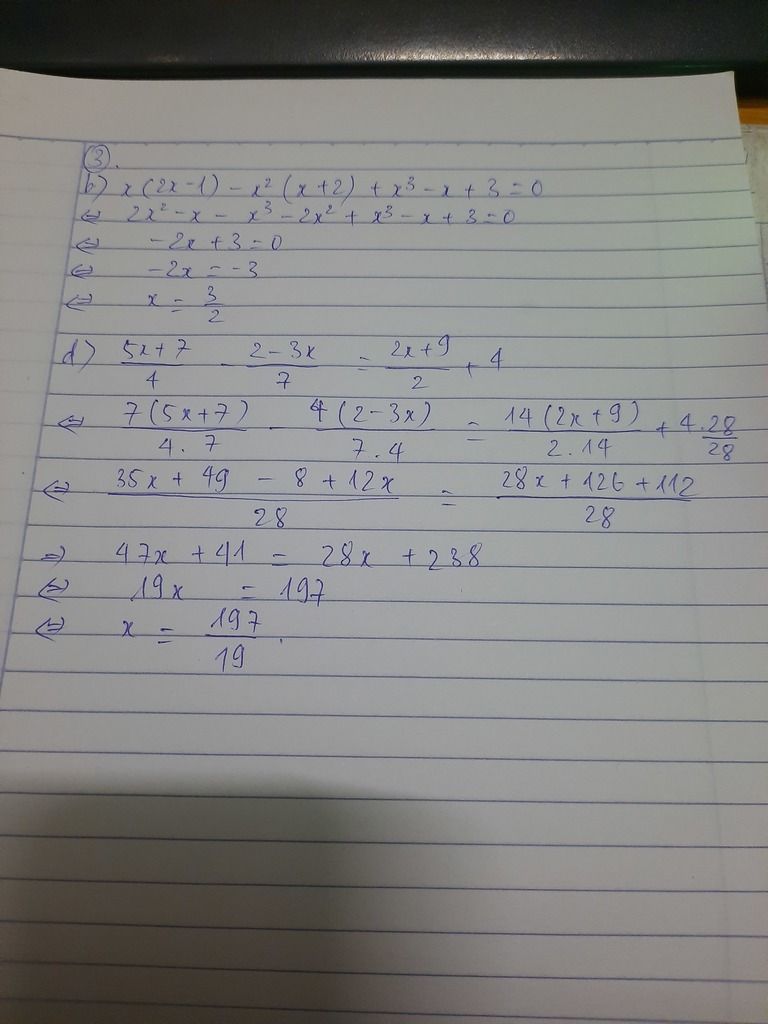 ③.
b) x(2x-1) - x² (x+2) + x³ - x + 3 = 0
⇔ 2x² - x - x³ - 2x² + x³ - x + 3 = 0
⇔ -2x + 3 = 0
⇔ -2x = -3
⇔ x = 3/2
d) (5x+7)/4 - (2-3x)/7 = (2x+9)/2 + 4
⇔ 7(5x+7)/(4.7) - 4(2-3x)/(7.4) = 14(2x+9)/(2.14) + 4.28/28
⇔ (35x + 49 - 8 + 12x)/28 = (28x + 126 + 112)/28
⇒ 47x + 41 = 28x + 238
⇔ 19x = 197
⇔ x = 197/19.